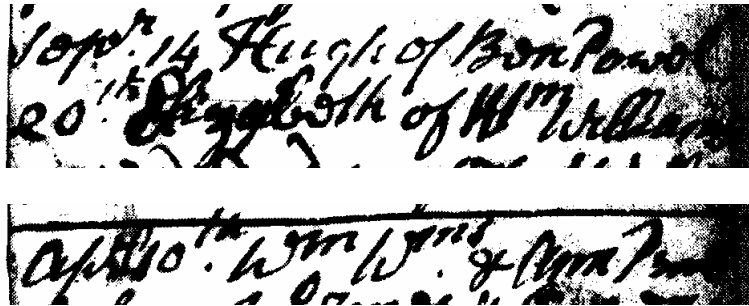 Sepr. 14 Hugh of Ben Powel
20th Elizabeth of Wm William
Apr 10th Wm Wms &